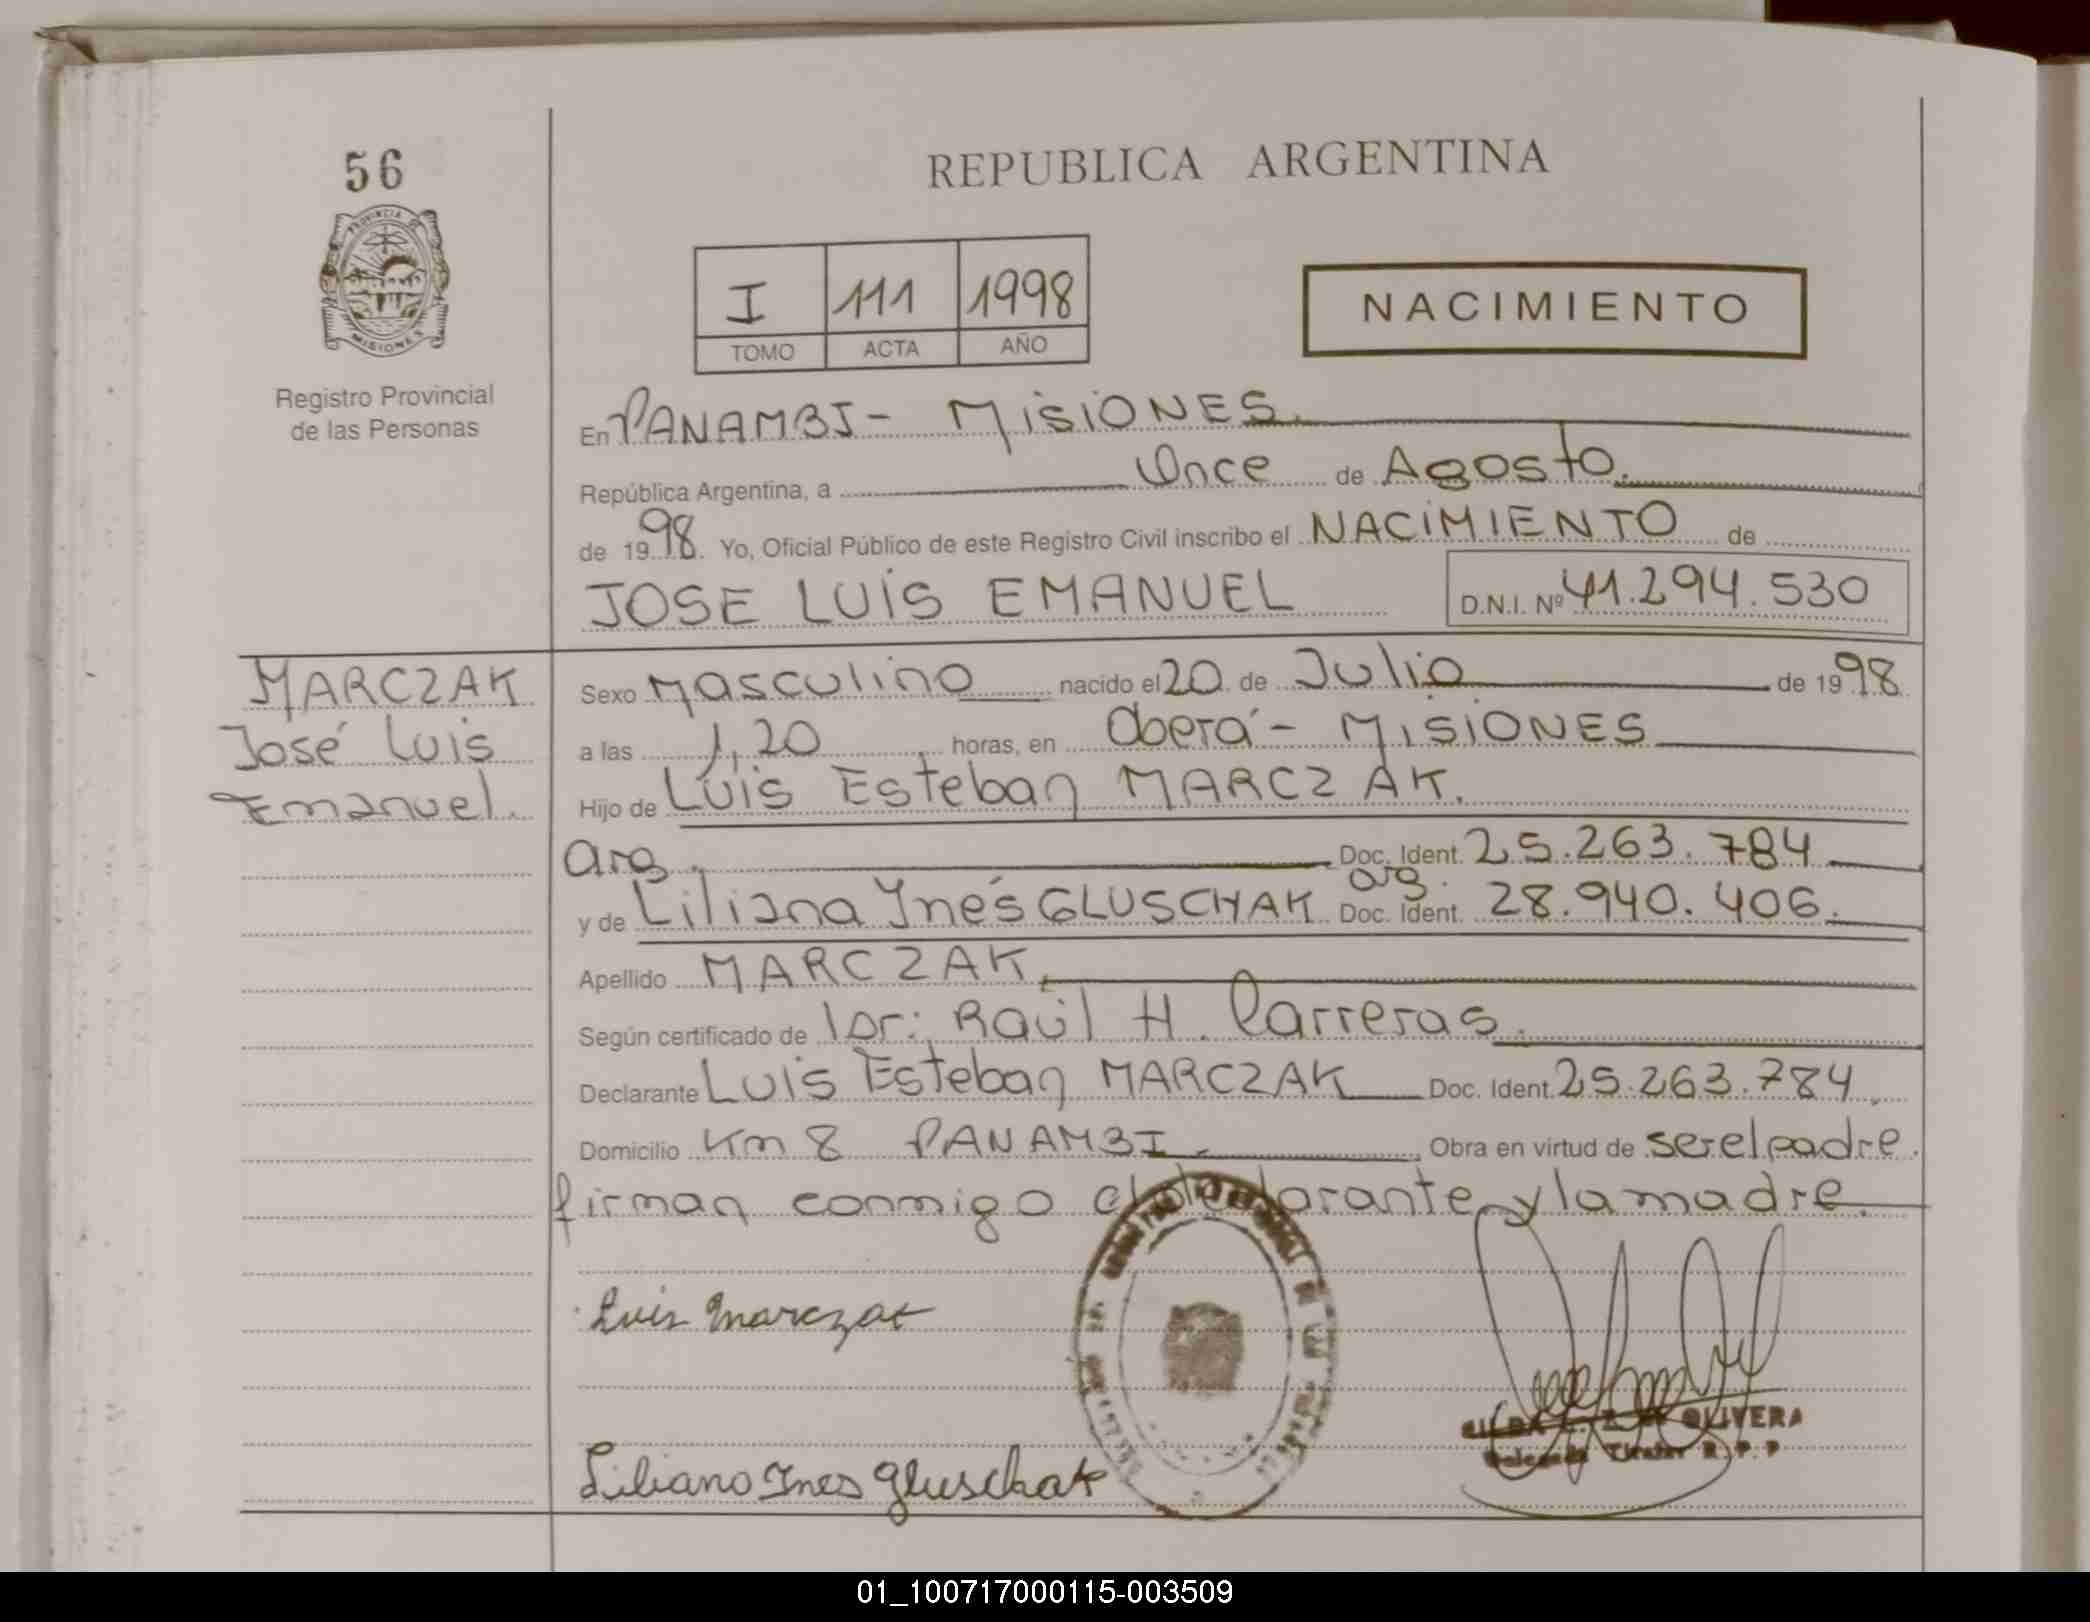 56
REPUBLICA ARGENTINA
PROVINCIA DE
MISIONES
I 111 1998
TOMO ACTA AÑO
NACIMIENTO
Registro Provincial
de las Personas
En PANAMBI - MISIONES.
República Argentina, a Once de Agosto.
de 1998. Yo, Oficial Público de este Registro Civil inscribo el NACIMIENTO de
JOSE LUIS EMANUEL D.N.I. Nº 41.294.530
MARCZAK
José Luis
Emanuel.
Sexo Masculino nacido el 20 de Julio de 1998
a las 1,20 horas, en Oberá - MISIONES
Hijo de Luis Esteban MARCZAK.
arg. Doc. Ident. 25.263.784
y de Liliana Inés GLUSCHAK arg. Doc. Ident. 28.940.406.
Apellido MARCZAK.
Según certificado de Dr: Raúl H. Carreras.
Declarante Luis Esteban MARCZAK Doc. Ident. 25.263.784.
Domicilio Km 8 PANAMBI. Obra en virtud de ser el padre.
firman conmigo el declarante y la madre.
Luis Marczak
OLIVERA
Titular R.P.P
Liliana Ines Gluschak
01_100717000115-003509